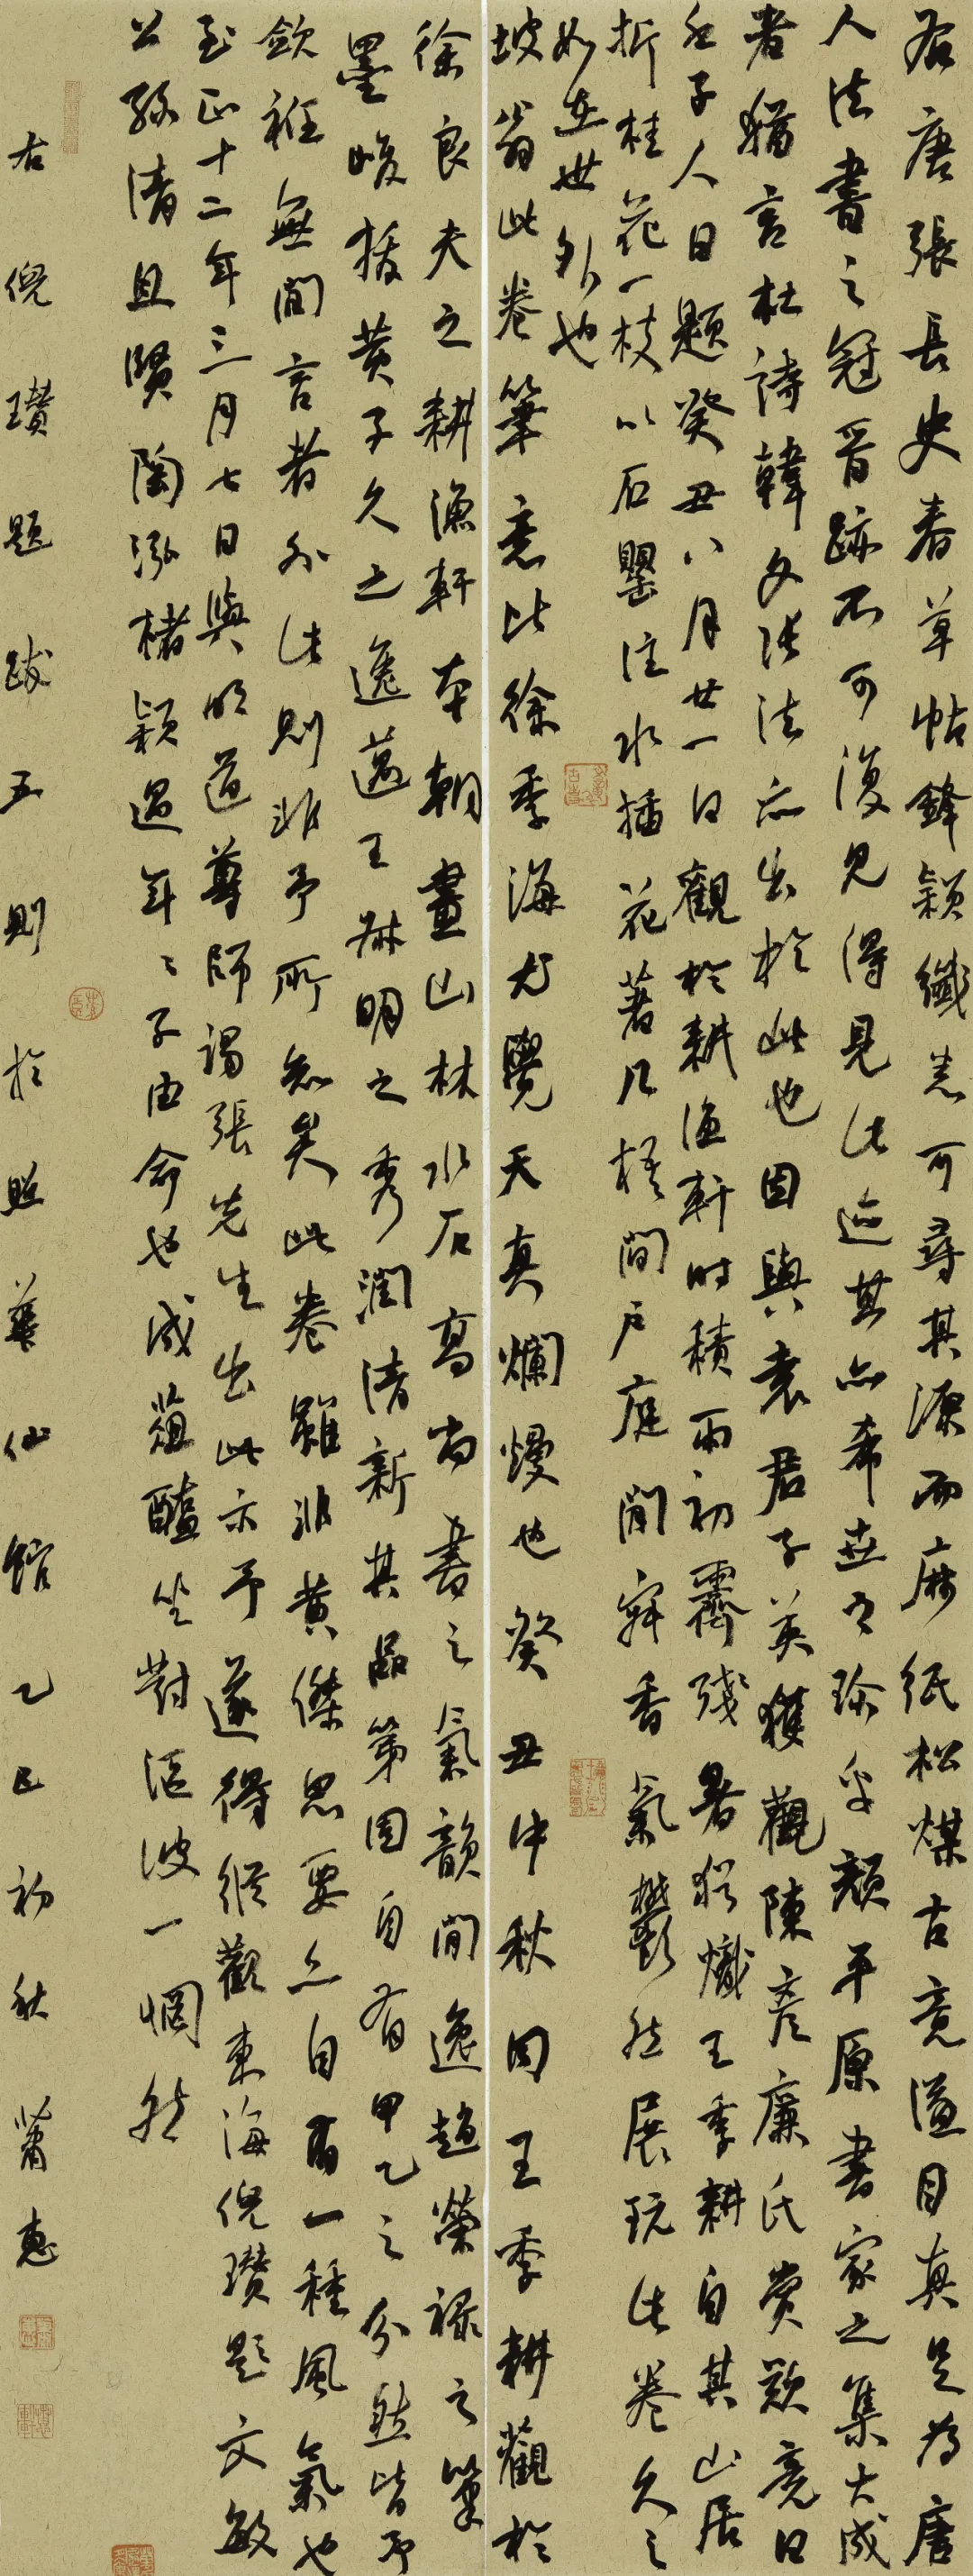 右唐張長史春草帖鋒穎纖悉可尋其源而麻紙松煤古意溢目真是為唐
人法書之冠晉跡不可復見得見此迹其亦希世之珍乎顏平原書家之集大成
者猶言杜詩韓文張法亦出於此也因與袁君子英獲觀陳彥廉氏賞歎竟日
壬子人日題癸丑八月廿一日觀於耕漁軒時積雨初霽殘暑猶熾王季耕自其山居
折桂花一枝以石罌注水插花著几格間戶庭閒寂香氣鬱然展玩此卷久之
如在世外也
坡翁此卷筆意比徐季海尤覺天真爛熳也癸丑中秋同王季耕觀於
徐良夫之耕漁軒本朝畫山林水石高尚書之氣韻閒逸趙榮祿之筆
墨峻拔黃子久之逸邁王叔明之秀潤清新其品第固自有甲乙之分然皆予
斂衽無間言者外此則非予所知矣此卷雖非黃傑思要亦自有一種風氣也
至正十二年三月七日與明道尊師謁張先生出此示予遂得縱觀東海倪瓚題文敏
公孫清且賢陶泓楮穎過年年子由命也成薀醢坐對滄波一惘然
右倪瓚題跋五則於照華仙館乙巳初秋蕭惠